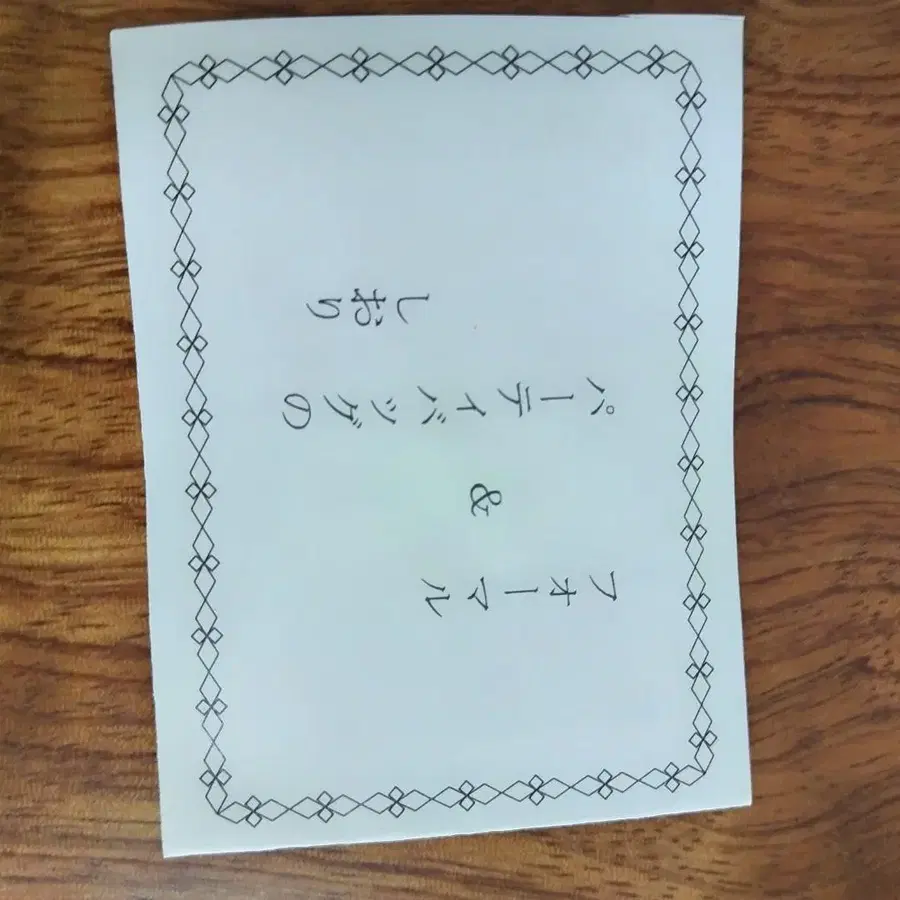 フォーマル
&
パーティバッグの
しおり